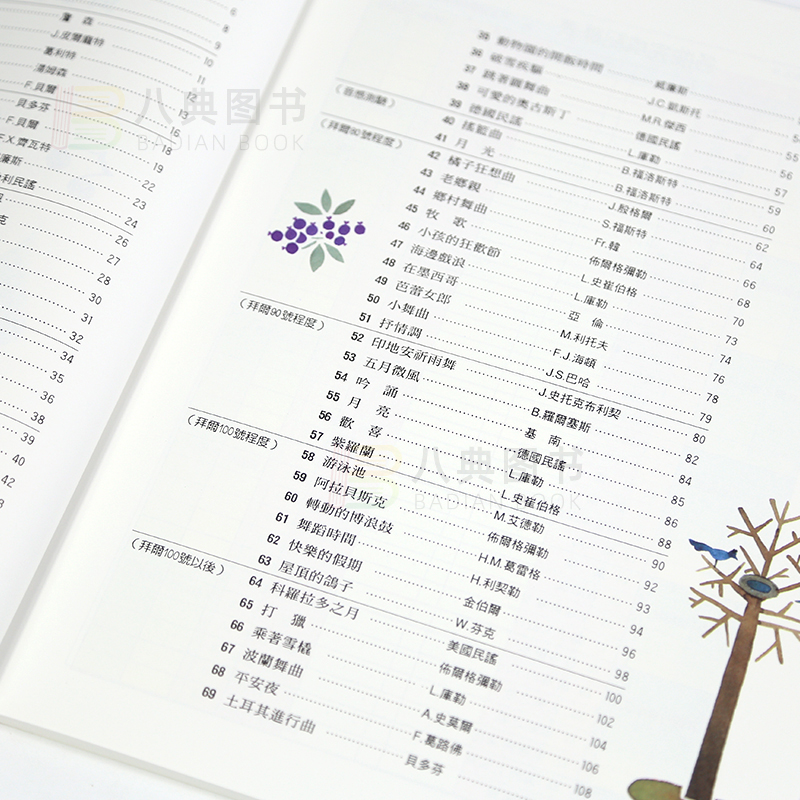 6
蕭 森 8
J.皮爾蘇特 9
葛利特 10
湯姆森 11
F.貝爾 12
貝多芬 13
F.貝爾 16
F.X.齊瓦特 18
廉斯 19
利民謠 22
23
24
克 26
27
28
30
31
32
34
35
36
38
39
40
42
35 動物園的開飯時間 威廉斯
36 破雪疾驅 J.C.凱斯托
37 跳著圓舞曲 M.R.傑西
38 可愛的奧古斯丁 德國民謠 55
39 德國民謠 L.庫勒 56
(音感測驗)
40 搖籃曲 B.福洛斯特 57
41 月 光 B.福洛斯特 59
(拜爾80號程度)
42 橘子狂想曲 J.殷格爾 60
43 老鄉親 S.福斯特 62
44 鄉村舞曲 Fr.韓 64
45 牧 歌 佈爾格彌勒 66
46 小孩的狂歡節 L.史崔伯格 68
47 海邊戲浪 L.庫勒 70
48 在墨西哥 亞 倫 73
49 芭蕾女郎 M.利托夫 74
50 小舞曲 F.J.海頓 76
51 抒情調 J.S.巴哈 78
(拜爾90號程度)
52 印地安祈雨舞 J.史托克布利契 79
53 五月微風 B.羅爾塞斯 80
54 吟 誦 基 南 82
55 月 亮 德國民謠 84
56 歡 喜 L.庫勒 85
57 紫羅蘭 L.史崔伯格 86
(拜爾100號程度)
58 游泳池 M.艾德勒 88
59 阿拉貝斯克 佈爾格彌勒 90
60 轉動的博浪鼓 H.M.葛雷格 92
61 舞蹈時間 H.利契勒 93
62 快樂的假期 金伯爾 94
63 屋頂的鴿子 W.芬克 96
(拜爾100號以後)
64 科羅拉多之月 美國民謠 98
65 打 獵 佈爾格彌勒 100
66 乘著雪橇 L.庫勒 102
67 波蘭舞曲 A.史莫爾 104
68 平安夜 F.葛路佛 106
69 土耳其進行曲 貝多芬 108
八典图书
BADIAN BOOK
八典图书
BADIAN BOOK